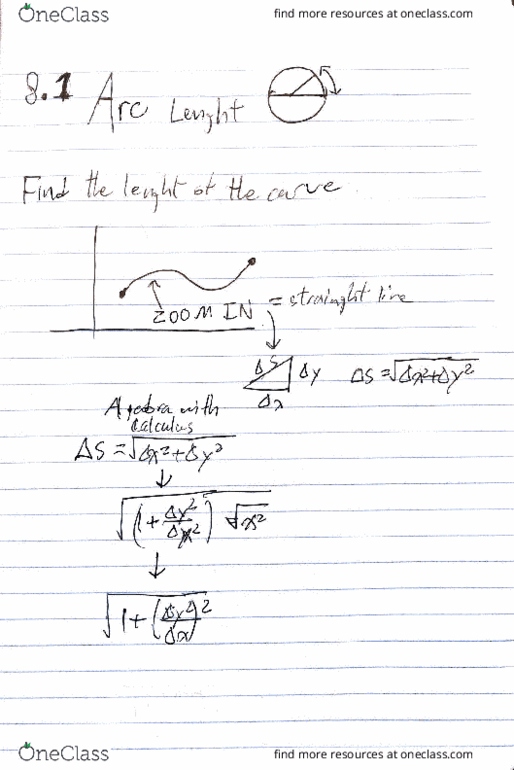 OneClass find more resources at oneclass.com
8.1 Arc Lenght
Find the lenght of the curve
ZOOM IN = strainght line
ΔS Δy ΔS = √Δx²+Δy²
Δx
Algebra with
Calculus
ΔS = √Δx²+Δy²
↓
√(1+Δy²/Δx²) √x²
↓
√1+(Δy²/Δx)²
OneClass find more resources at oneclass.com